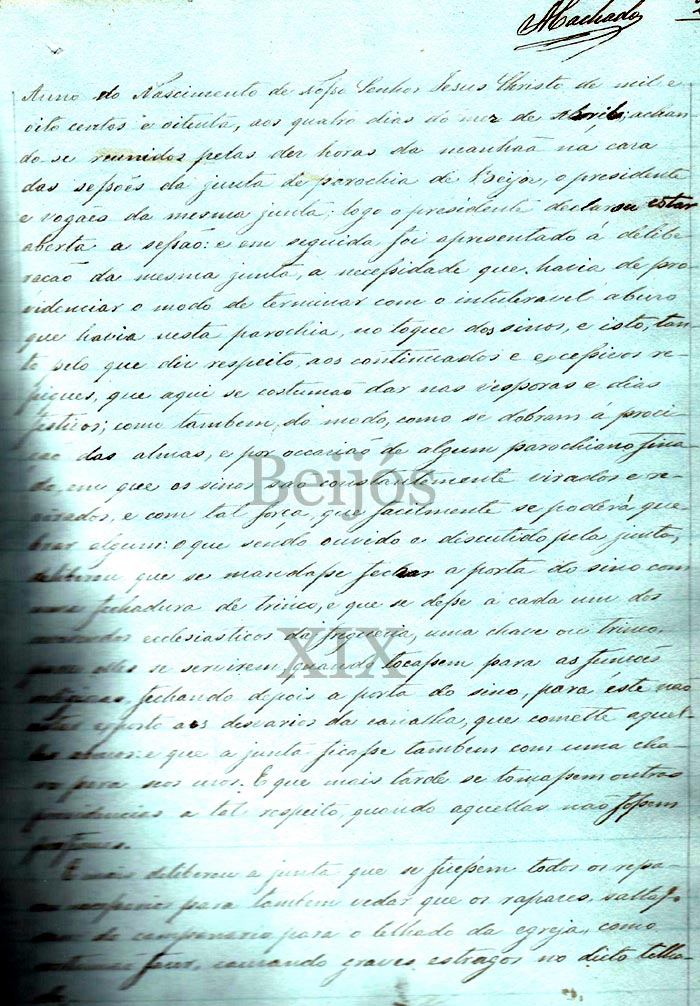 Machado
Anno do Nascimento de Nosso Senhor Jesus Christo de mil e
oito centos e oitenta, aos quatro dias do mez de Abril; achan-
do se reunidos pelas dez horas da manhaã na caza
das sessões da junta de parochia de Beijos, o presidente
e vogaes da mesma junta; logo o presidente declarou estar
aberta a sessão: e em seguida foi apresentado á delibe-
racão da mesma junta, a necessidade que havia de pro-
videnciar o modo de terminar com o intuleravel abuzo
que havia nesta parochia, no toque dos sinos, e isto, tan-
to pelo que diz respeito, aos continuados e excessivos re-
piques, que aqui se costumão dar nas vesporas e dias
festivos; como tambem, do modo, como se dobram á proci-
ão das almas, e por occazião de algum parochiano fina-
do, em que os sinos são constantemente virados e re-
virados, e com tal força, que facilmente se poderá que-
brar algum: o que sendo ouvido e discutido pela junta,
deliberou que se mandasse fechar a porta do sino com
uma fechadura de trinco, e que se desse a cada um dos
ecclesiasticos da freguezia, uma chave ou trinco,
para elles se servirem, quando tocassem para as funcões
religiosas, fechando depois a porta do sino, para este não
estar exposto aos desvarios da canalha, que comette aquel-
les abuzos: e que a junta ficasse tambem com uma cha-
ve para seos uzos. E que mais tarde se tomassem outras
providencias a tal respeito, quando aquellas não fossem
E mais deliberou a junta que se fizessem todos os repa-
ros necessarios para tambem vedar que os rapazes, saltas-
sem do campanario para o telhado da egreja, como
costumão fazer, cauzando graves estragos no dicto telha-
do.
Beijós
XIX